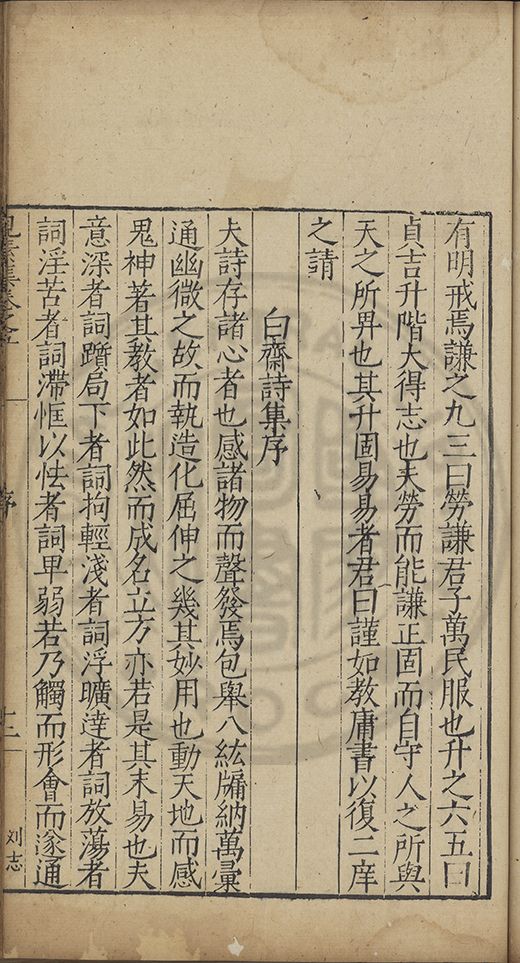 有明戒焉謙之九三曰勞謙君子萬民服也升之六五曰
貞吉升階大得志也夫勞而能謙正固而自守人之所與
天之所畀也其升固易易者君曰謹如教庸書以復二庠
之請
白齋詩集序
夫詩存諸心者也感諸物而聲發焉包舉八紘牖納萬彙
通幽微之故而執造化屈伸之幾其妙用也動天地而感
鬼神著其教者如此然而成名立方亦若是其末易也夫
意深者詞躋局下者詞拘輕淺者詞浮曠達者詞放蕩者
詞淫苦者詞滯恇以怯者詞卑弱若乃觸而形會而遂通
序
十二
刘志